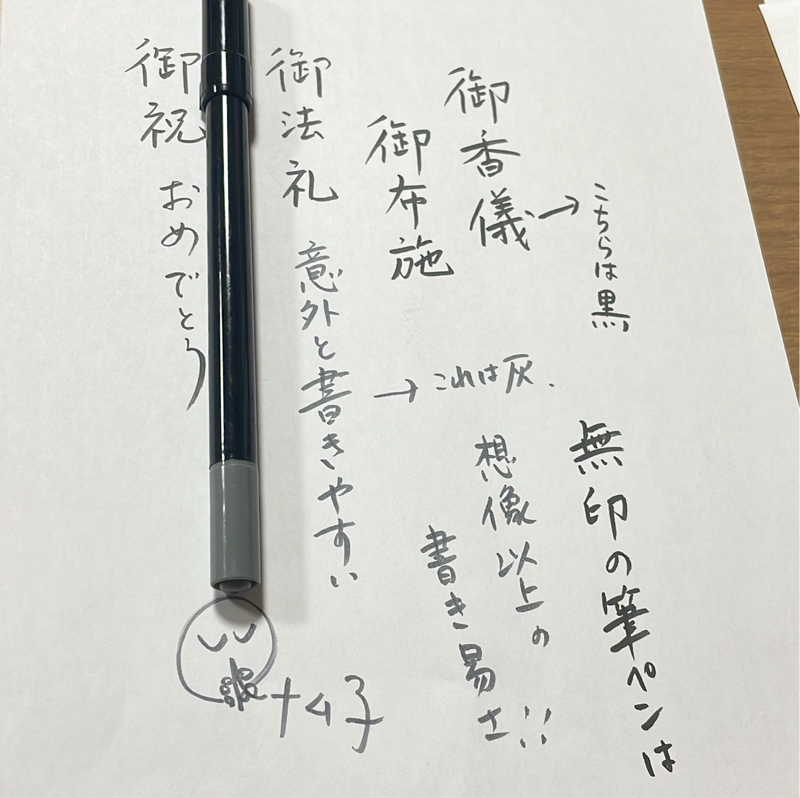 無印の筆ペンは
想像以上の
書き易さ!!
御香儀→こちらは黒
御布施
御法礼
意外と書きやすい→これは灰.
御祝
おめでとう
ナム子